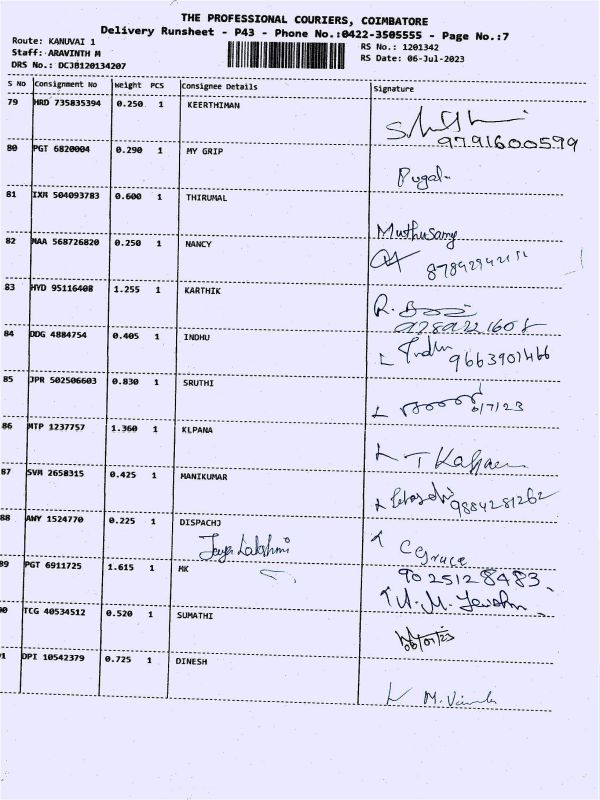 THE PROFESSIONAL COURIERS, COIMBATORE
Delivery Runsheet - P43 - Phone No.:0422-3505555 - Page No.:7
Route: KANUVAI 1
Staff: ARAVINTH M
DRS No.: DCJB120134207
RS No.: 1201342
RS Date: 06-Jul-2023
S No Consignment No Weight PCS Consignee Details Signature
79 HRD 735835394 0.250 1 KEERTHIMAN
9791600599
80 PGT 6820004 0.290 1 MY GRIP
Pugal
81 IXM 504093783 0.600 1 THIRUMAL
Muthusamy
82 MAA 568726820 0.250 1 NANCY
83 HYD 95116408 1.255 1 KARTHIK
R.
84 DDG 4884754 0.405 1 INDHU
Indhu 9663901466
85 JPR 502506603 0.830 1 SRUTHI
6/7/23
86 MTP 1237757 1.360 1 KLPANA
T Kalpana
87 SVM 2658315 0.425 1 MANIKUMAR
9884281262
88 ANY 1524770 0.225 1 DISPACHJ
Jeya Lakshmi
C Grace
89 PGT 6911725 1.615 1 MK
9025128483
90 TCG 40534512 0.520 1 SUMATHI
06/07/23
91 DPI 10542379 0.725 1 DINESH
M.